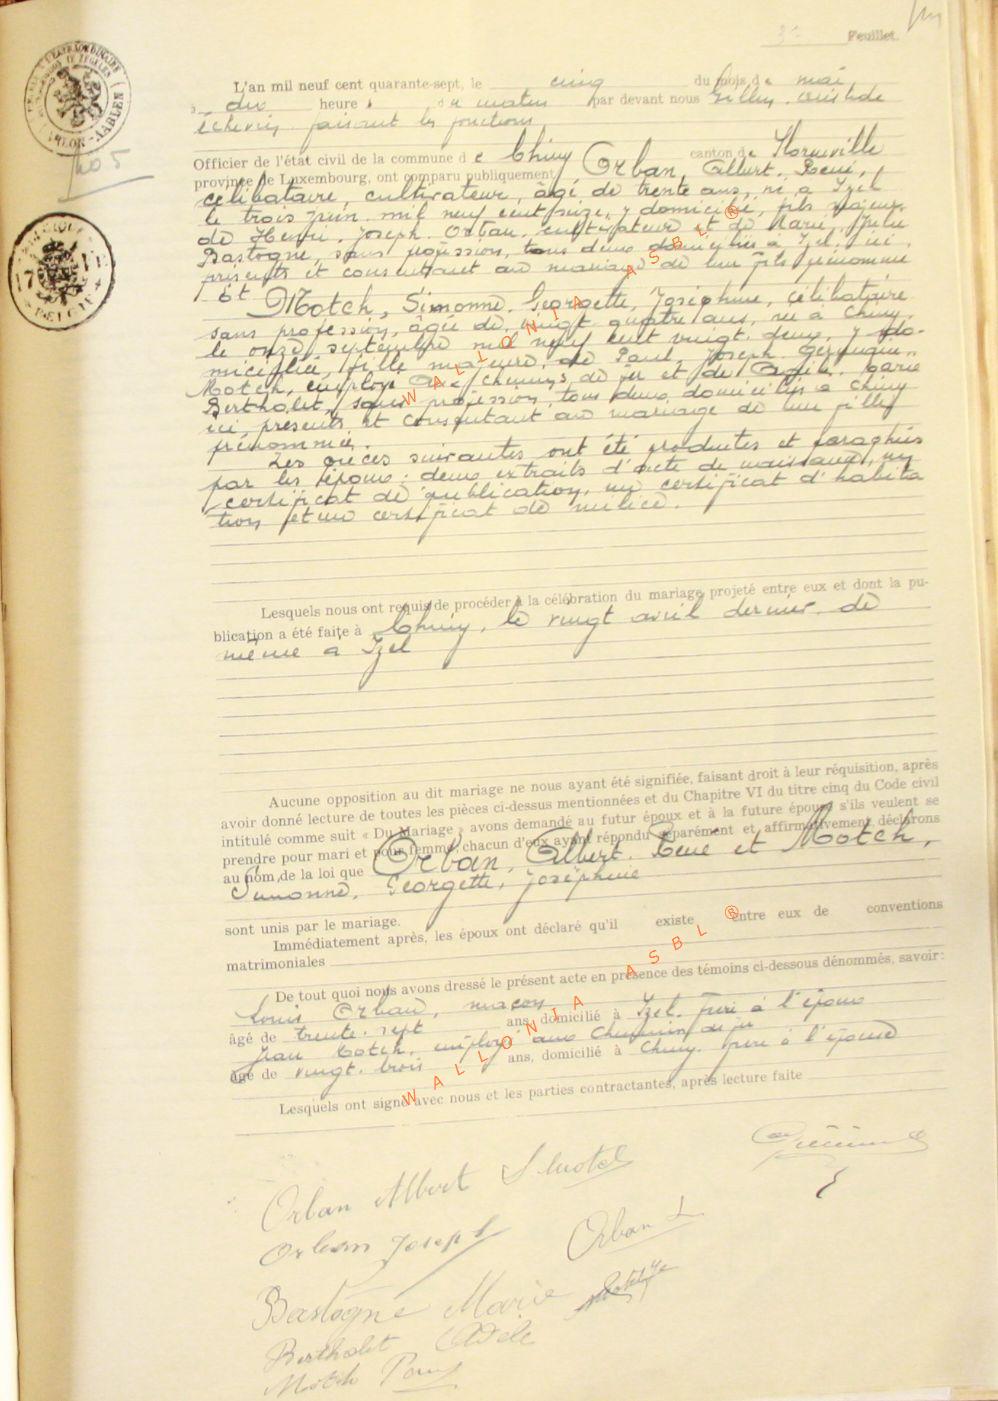 Feuillet.
N° 5
ARLON - AARLEN
BELGIQUE
BELGIE
L'an mil neuf cent quarante-sept, le cinq du mois de mai,
à dix heures du matin par devant nous Gilles
échevin faisant les fonctions
Officier de l'état civil de la commune de Chiny canton de Florenville
province de Luxembourg, ont comparu publiquement Orban, Albert, René,
célibataire, cultivateur, âgé de trente ans, né à Izel
le trois juin mil neuf cent seize, y domicilié, fils majeur
de Henri, Joseph Orban, cultivateur et de Marie, Julie
Bastogne, sans profession, tous deux domiciliés à Izel, ici
présents et consentant au mariage de leur fils prénommé
Et Motch, Simonne, Georgette, Joséphine, célibataire
sans profession, âgée de vingt-quatre ans, née à Chiny,
le onze septembre mil neuf cent vingt-deux, y do-
miciliée, fille majeure, de Paul, Joseph, Germain,
Motch, employé aux chemins de fer et de Adèle, Marie
Bertholet, sans profession, tous deux domiciliés à Chiny
ici présents et consentant au mariage de leur fille
prénommée.
Les pièces suivantes ont été produites et paraphées
par les époux : deux extraits d'acte de naissance, un
certificat de publication, un certificat d'habita
tion et un certificat de milice.
Lesquels nous ont requis de procéder à la célébration du mariage projeté entre eux et dont la pu-
blication a été faite à Chiny, le vingt avril dernier, de
même à Izel
Aucune opposition au dit mariage ne nous ayant été signifiée, faisant droit à leur réquisition, après
avoir donné lecture de toutes les pièces ci-dessus mentionnées et du Chapitre VI du titre cinq du Code civil
intitulé comme suit « Du Mariage » avons demandé au futur époux et à la future épouse s'ils veulent se
prendre pour mari et pour femme; chacun d'eux ayant répondu séparément et affirmativement, déclarons
au nom de la loi que Orban, Albert, René et Motch,
Simonne, Georgette, Joséphine
sont unis par le mariage.
Immédiatement après, les époux ont déclaré qu'il existe entre eux de conventions
matrimoniales
De tout quoi nous avons dressé le présent acte en présence des témoins ci-dessous dénommés, savoir:
Louis Orban, maçon
âgé de trente-sept ans, domicilié à Izel, frère à l'époux
Jean Motch, employé aux Chemin de fer
âgé de vingt-trois ans, domicilié à Chiny, frère à l'épouse
Lesquels ont signé avec nous et les parties contractantes, après lecture faite
Orban Albert S Motch
Orban Joseph Orban L
Bastogne Marie
Bertholet Adèle
Motch Paul
WALLONIA ASBL ®
WALLONIA ASBL ®